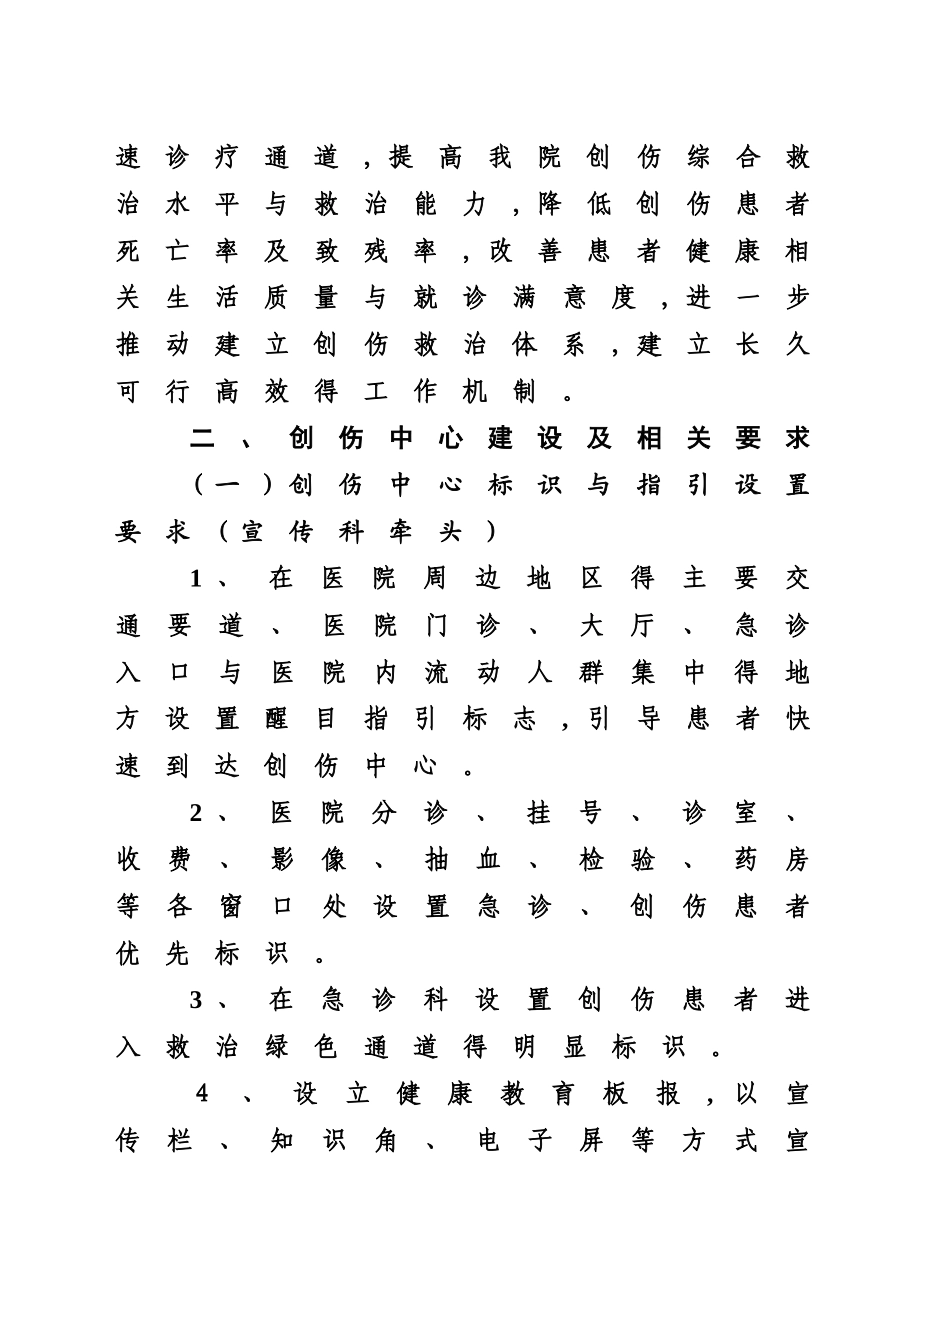 速诊疗通道,提高我院创伤综合救
治水平与救治能力,降低创伤患者
死亡率及致残率,改善患者健康相
关生活质量与就诊满意度,进一步
推动建立创伤救治体系,建立长久
可行高效得工作机制。
二、创伤中心建设及相关要求
(一)创伤中心标识与指引设置
要求(宣传科牵头)
1、在医院周边地区得主要交
通要道、医院门诊、大厅、急诊
入口与医院内流动人群集中得地
方设置醒目指引标志,引导患者快
速到达创伤中心。
2、医院分诊、挂号、诊室、
收费、影像、抽血、检验、药房
等各窗口处设置急诊、创伤患者
优先标识。
3、在急诊科设置创伤患者进
入救治绿色通道得明显标识。
4、设立健康教育板报,以宣
传栏、知识角、电子屏等方式宣